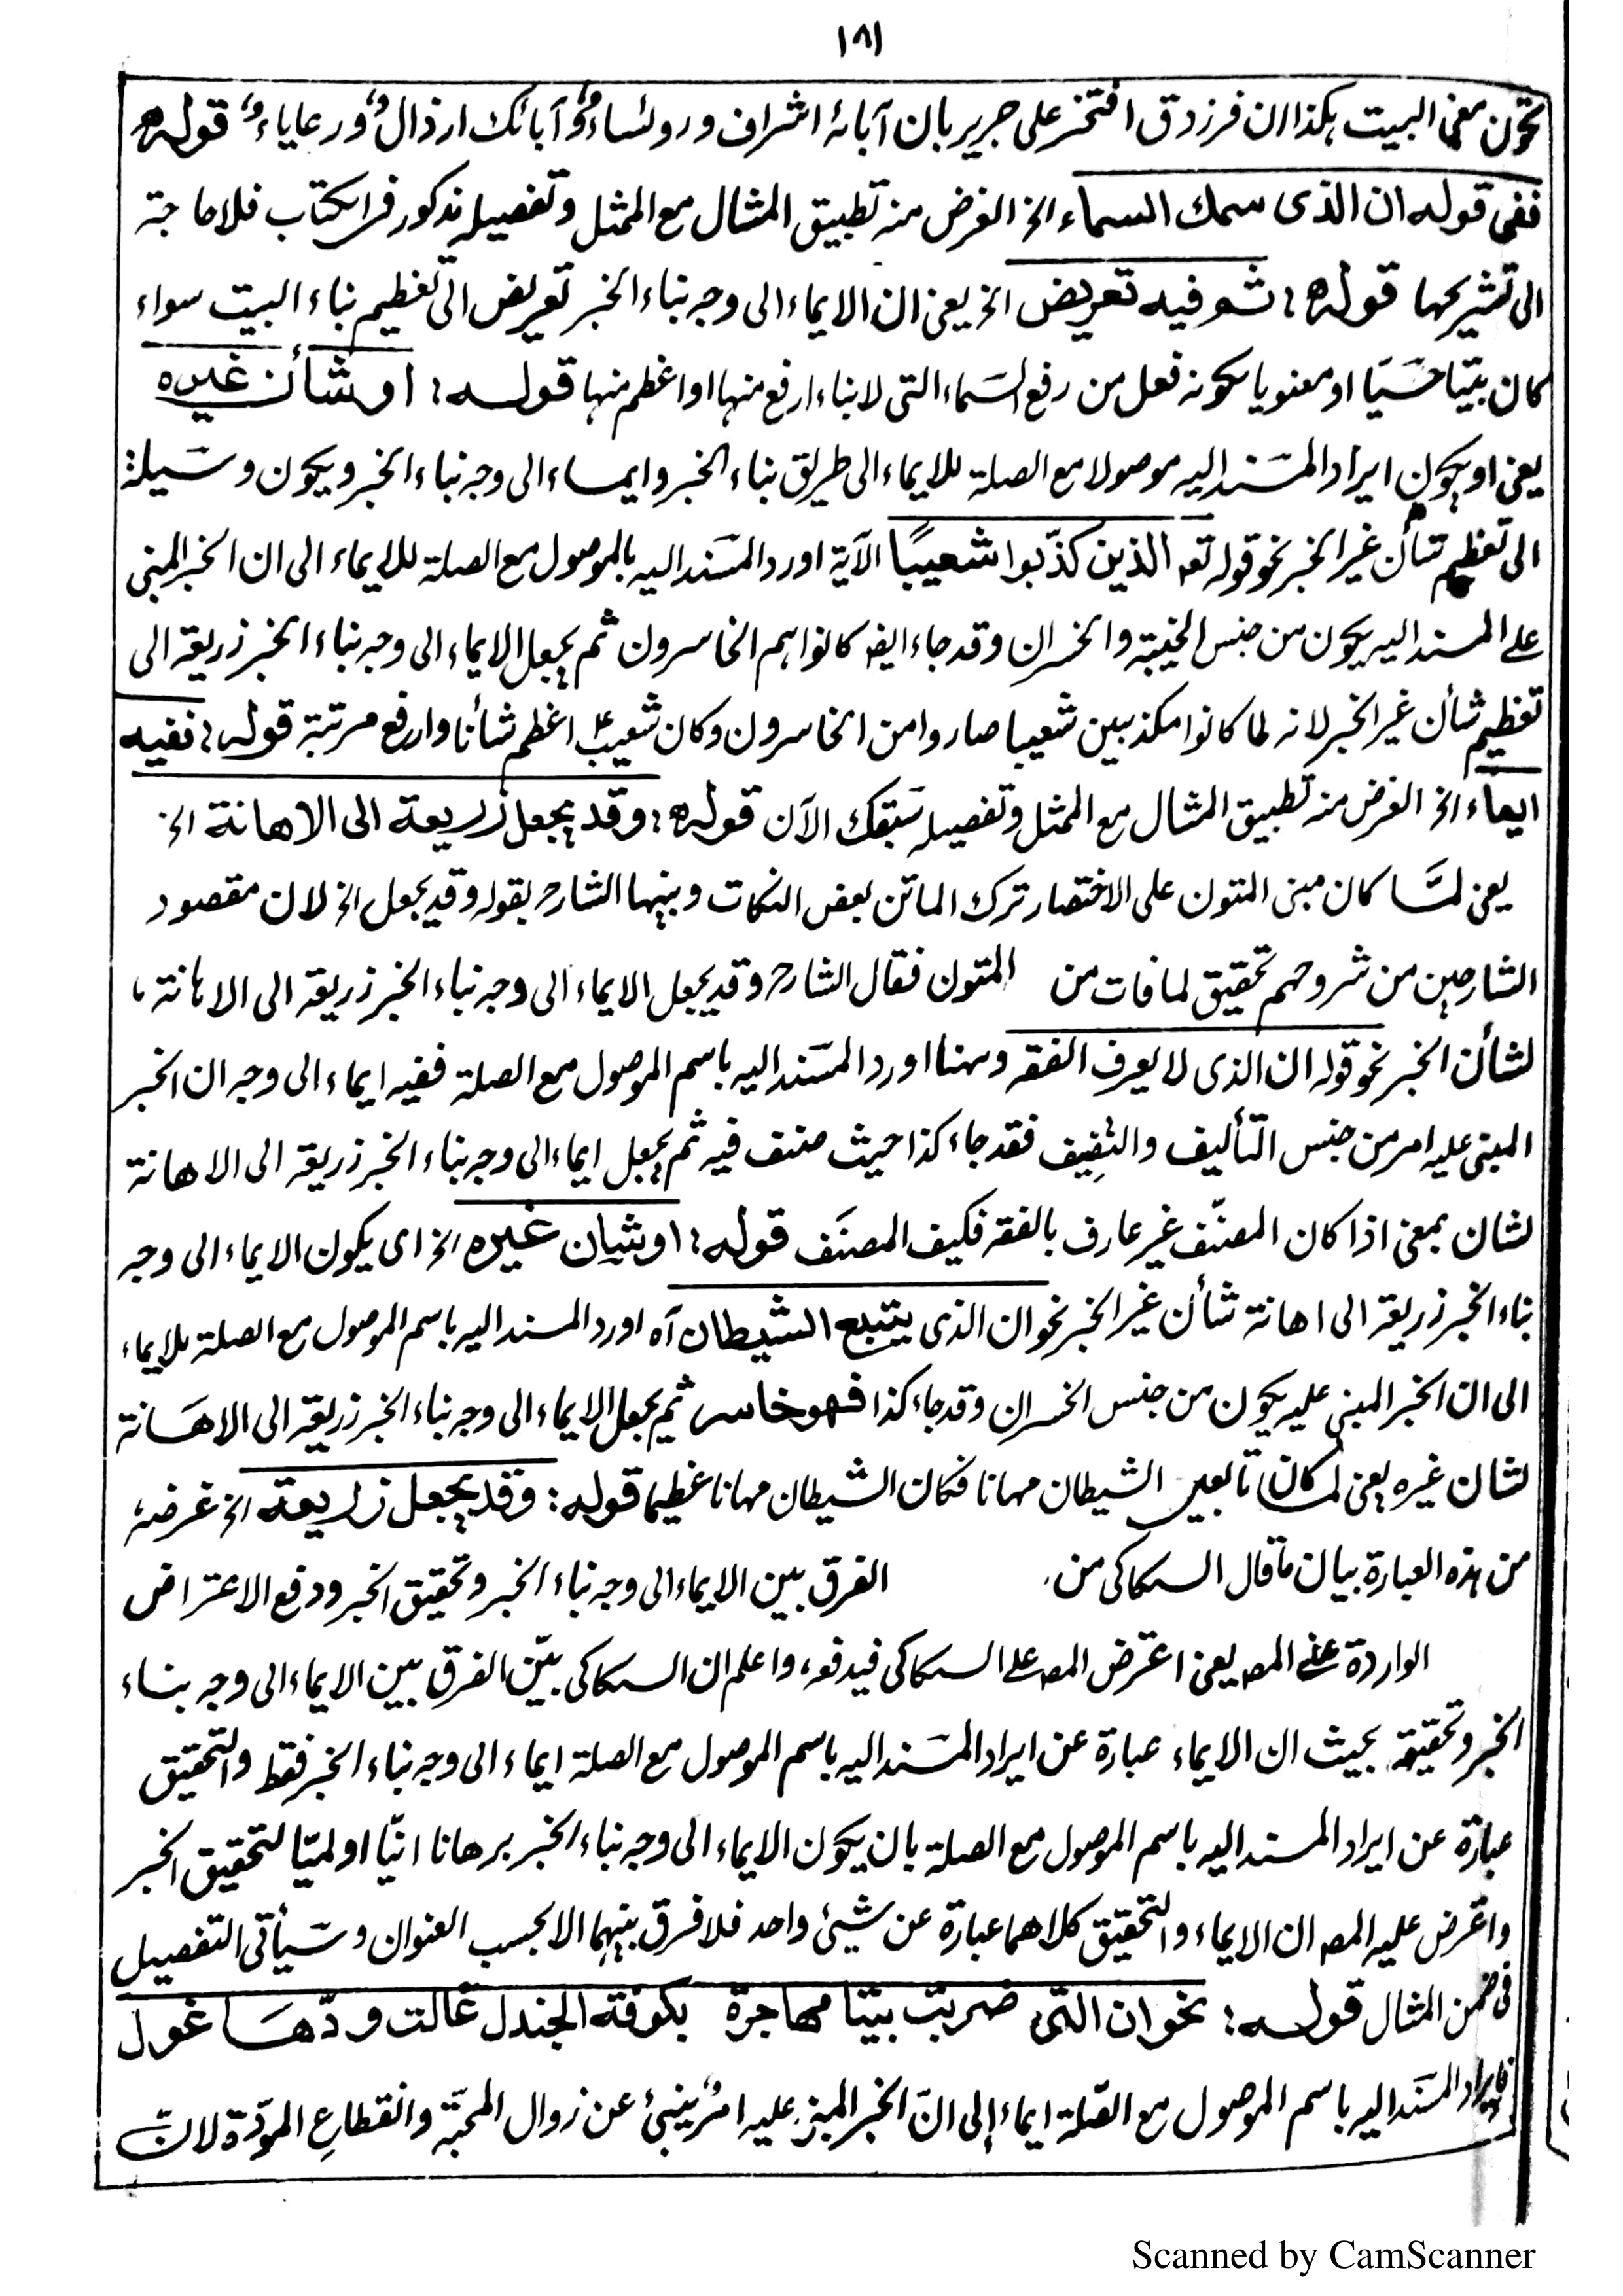 ١٨١
تكون معنى البيت هكذا ان فرزدق افتخر على جرير بان آبائه اشراف ورؤساء وآبائك ارذال ورعاياء قوله
ففى قوله ان الذى سمك السماء الخ الغرض منه تطبيق المثال مع الممثل وتفصيله مذكور فى الكتاب فلا حاجة
الى تشريحها قوله: ثم فيه تعريض الخ يعنى ان الايماء الى وجه بناء الخبر تعريض الى تعظيم بناء البيت سواء
كان بيتا حسيا او معنويا بكونه فعل من رفع السماء التى لا بناء ارفع منها او اعظم منها قوله: او شأن غيره
يعنى او يكون ايراد المسند اليه موصولا مع الصلة للايماء الى طريق بناء الخبر وايماء الى وجه بناء الخبر ويكون وسيلة
الى تعظيم شأن غير الخبر نحو قوله تعه الذين كذبوا شعيبًا الآية اورد المسند اليه بالموصول مع الصلة للايماء الى ان الخبر المبنى
على المسند اليه يكون من جنس الخيبة والخسران وقد جاء ايضا كانوا هم الخاسرون ثم يجعل الايماء الى وجه بناء الخبر زريعة الى
تعظيم شأن غير الخبر لانه لما كانوا مكذبين شعيبا صاروا من الخاسرون وكان شعيب ع اعظم شأنا وارفع مرتبة قوله: ففيه
ايماء الخ الغرض منه تطبيق المثال مع الممثل وتفصيله سبقك الآن قوله: وقد يجعل زريعة الى الاهانة الخ
يعنى لما كان مبنى المتون على الاختصار ترك الماتن بعض النكات وبينها الشارح بقوله وقد يجعل الخ لان مقصود
الشارحين من شروحهم تحقيق لما فات من المتون فقال الشارح وقد يجعل الايماء الى وجه بناء الخبر زريعة الى الاهانة
لشأن الخبر نحو قوله ان الذى لا يعرف الفقه وههنا اورد المسند اليه باسم الموصول مع الصلة ففيه ايماء الى وجه ان الخبر
المبنى عليه امر من جنس التأليف والتصنيف فقد جاء كذا حيث صنف فيه ثم يجعل ايماء الى وجه بناء الخبر زريعة الى الاهانة
لشان بمعنى اذا كان المصنّف غير عارف بالفقه فكيف المصنَف قوله: او شان غيره الخ اى يكون الايماء الى وجه
بناء الخبر زريعة الى اهانة شأن غير الخبر نحو ان الذى يتبع الشيطان آه اورد المسند اليه باسم الموصول مع الصلة للايماء
الى ان الخبر المبنى عليه يكون من جنس الخسران وقد جاء كذا فهو خاسر ثم يجعل الايماء الى وجه بناء الخبر زريعة الى الاهانة
لشان غيره يعنى لما كان تابعين الشيطان مهانا فكان الشيطان مهانا عظيما قوله: وقد يجعل زريعة الخ غرضه
من هذه العبارة بيان ما قال السكاكى من الفرق بين الايماء الى وجه بناء الخبر وتحقيق الخبر ودفع الاعتراض
الواردة على المصه يعنى اعترض المصه على السكاكى فيدفعه واعلم ان السكاكى بيّن الفرق بين الايماء الى وجه بناء
الخبر وتحقيقه بحيث ان الايماء عبارة عن ايراد المسند اليه باسم الموصول مع الصلة ايماء الى وجه بناء الخبر فقط والتحقيق
عبارة عن ايراد المسند اليه باسم الموصول مع الصلة بان يكون الايماء الى وجه بناء الخبر برهانا انيّا او لميّا لتحقيق الخبر
واعترض عليه المصه ان الايماء والتحقيق كلاهما عبارة عن شيئ واحد فلا فرق بينهما الا بحسب العنوان وسيأتى التفصيل
فى ضمن المثال قوله: نحو ان التى ضربت بيتا مهاجرة بكوفة الجندل غالت ودّها غول
فايراد المسند اليه باسم الموصول مع الصّلة ايماء إلى انّ الخبر المبنى عليه امرٌ ينبئ عن زوال المحبّة وانقطاع المودّة لانّ
Scanned by CamScanner